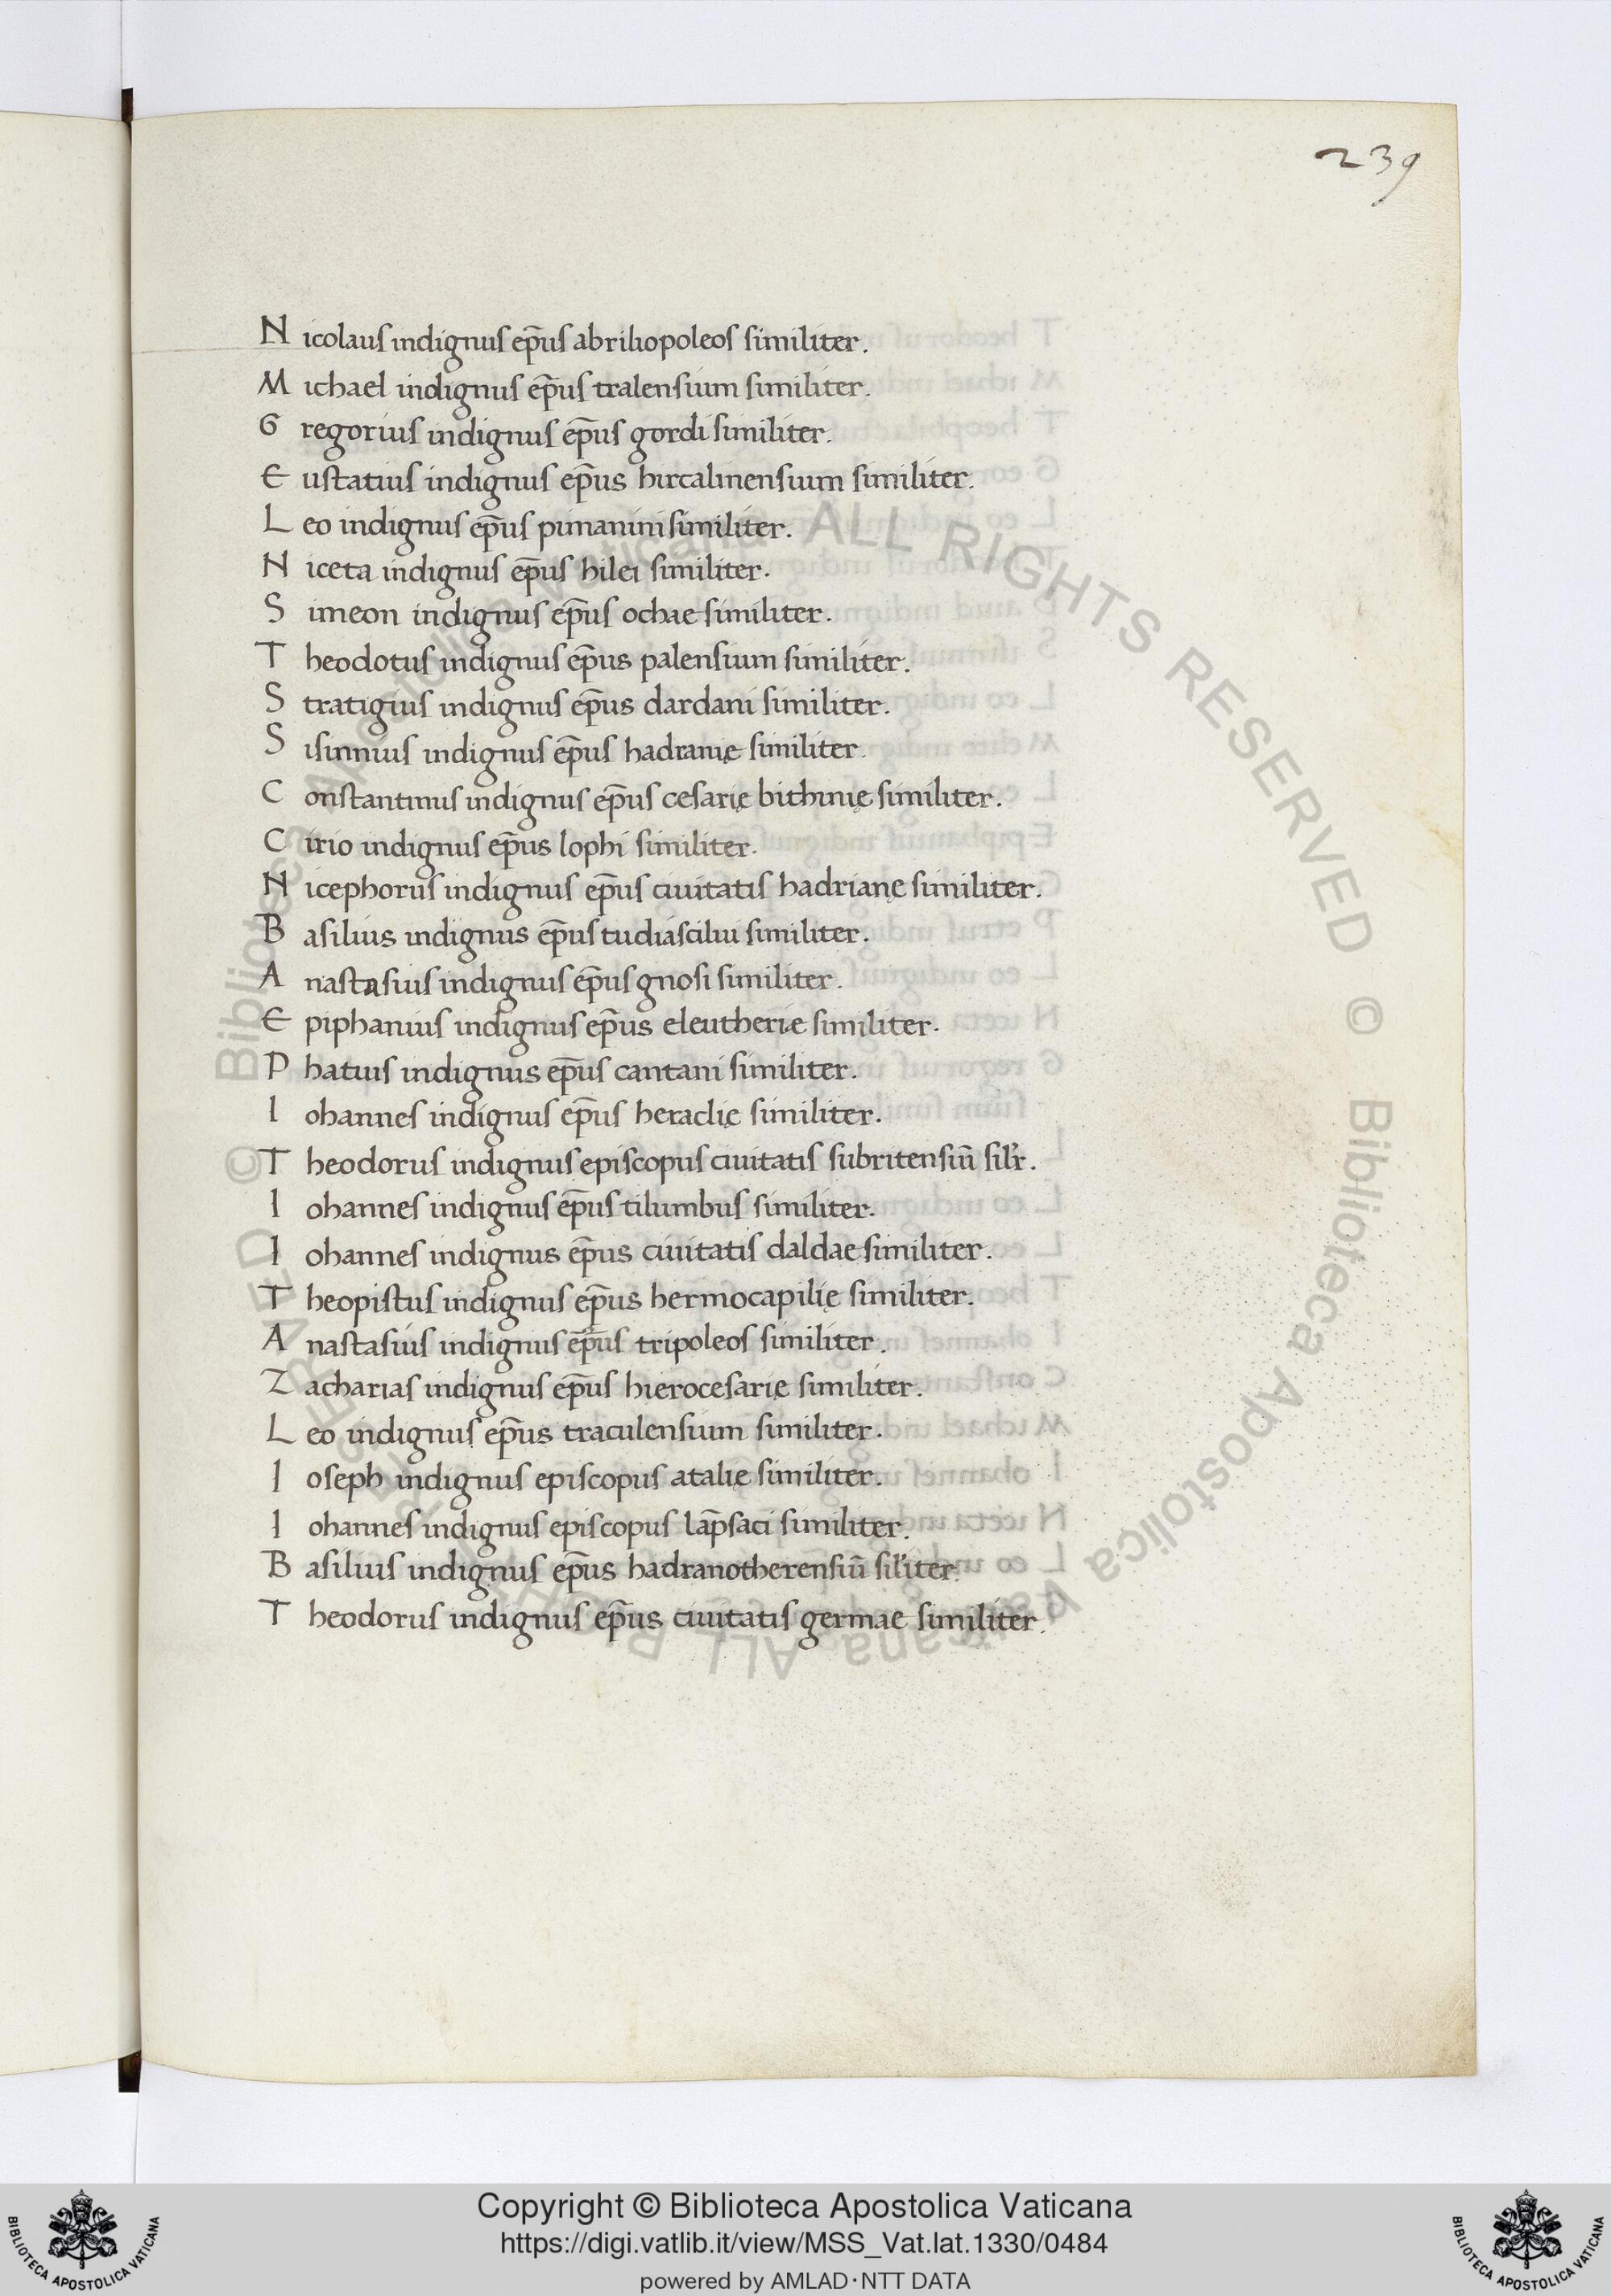 239
Nicolaus indignus ep̄us abriliopoleos similiter.
Michael indignus ep̄us tralensium similiter.
Gregorius indignus ep̄us gordi similiter.
Eustatius indignus ep̄us hircalinensium similiter.
Leo indignus ep̄us pimanini similiter.
Niceta indignus ep̄us hilei similiter.
Simeon indignus ep̄us ochae similiter.
Theodotus indignus ep̄us palensium similiter.
Stratigius indignus ep̄us dardani similiter.
Sisinnius indignus ep̄us hadranię similiter.
Constantinus indignus ep̄us cesarię bithinię similiter.
Cirio indignus ep̄us lophi similiter.
Nicephorus indignus ep̄us ciuitatis hadrianę similiter.
Basilius indignus ep̄us tudiascilui similiter.
Anastasius indignus ep̄us gnosi similiter.
Epiphanius indignus ep̄us eleutherię similiter.
Phatuis indignus ep̄us cantani similiter.
Iohannes indignus ep̄us heraclię similiter.
Theodorus indignus episcopus ciuitatis subritensiū sil'r.
Iohannes indignus ep̄us tilumbus similiter.
Iohannes indignus ep̄us ciuitatis daldae similiter.
Theopistus indignus ep̄us hermocapilię similiter.
Anastasius indignus ep̄us tripoleos similiter.
Zacharias indignus ep̄us hierocesarię similiter.
Leo indignus ep̄us traculensium similiter.
Ioseph indignus episcopus atalię similiter.
Iohannes indignus episcopus lap̄saci similiter.
Basilius indignus ep̄us hadranotherensiū sil'iter.
Theodorus indignus ep̄us ciuitatis germae similiter.
© Biblioteca Apostolica Vaticana ALL RIGHTS RESERVED © Biblioteca Apostolica Vaticana ALL RIGHTS RESERVED
Copyright © Biblioteca Apostolica Vaticana
https://digi.vatlib.it/view/MSS_Vat.lat.1330/0484
powered by AMLAD·NTT DATA
BIBLIOTECA APOSTOLICA VATICANA
BIBLIOTECA APOSTOLICA VATICANA